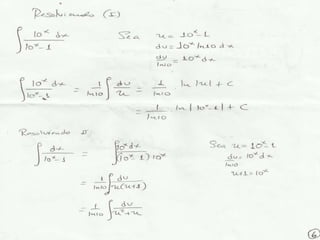 Resolviendo (I)
∫ 10ˣ dx / 10ˣ-1   Sea u = 10ˣ-1
du = 10ˣ ln10 dx
du/ln10 = 10ˣ dx
∫ 10ˣ dx / 10ˣ-1 = 1/ln10 ∫ du/u = 1/ln10 ln |u| + C
= 1/ln10 ln |10ˣ-1| + C
Resolviendo II
∫ dx / 10ˣ-1 = ∫ 10ˣ dx / (10ˣ-1) 10ˣ   Sea u = 10ˣ-1
du/ln10 = 10ˣ dx
= 1/ln10 ∫ du / u(u+1)   u+1 = 10ˣ
= 1/ln10 ∫ du / u²+u
6